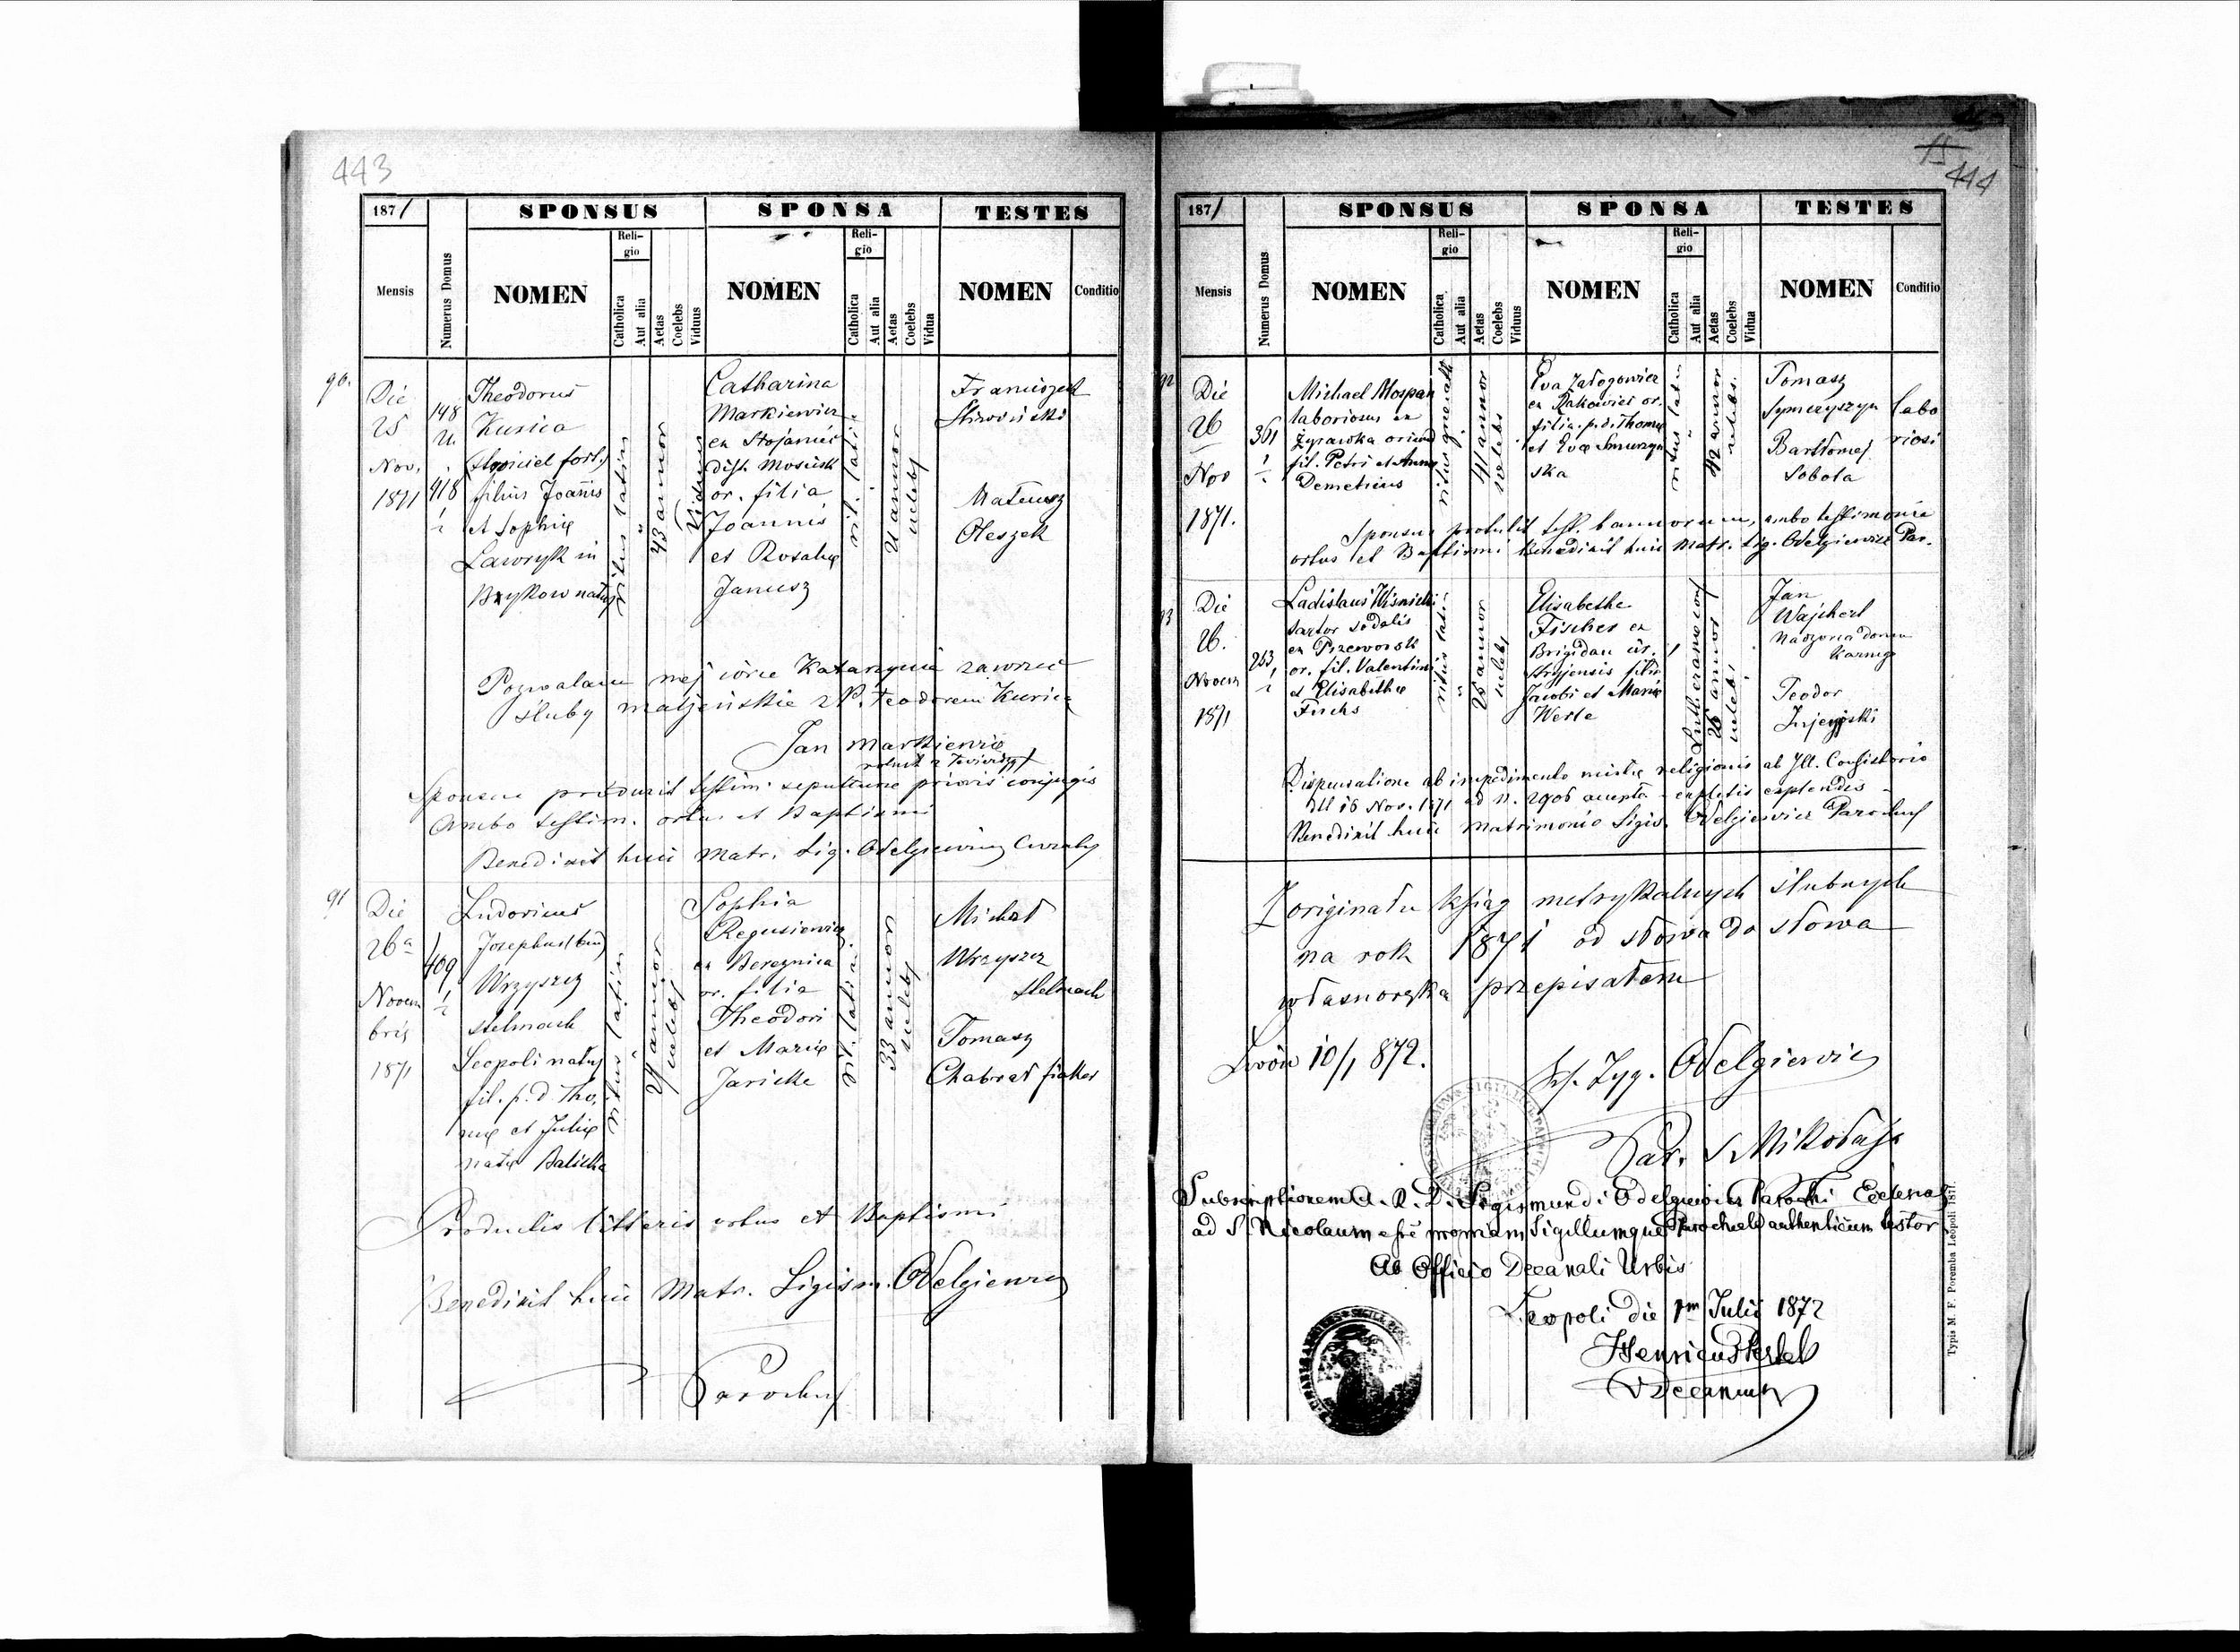 443
187/
SPONSUS
SPONSA
TESTES
Mensis
Numerus Domus
NOMEN
Religio
Catholica
Aut alia
Aetas
Coelebs
Viduus
NOMEN
Religio
Catholica
Aut alia
Aetas
Coelebs
Vidua
NOMEN
Conditio
90.
Die
25
Nov.
1871
148
418
Theodorus
Kurica
filius Joannis
et Sophiæ
Lawryk in
ritus latin
43 annor
Viduus
Catharina
Markiewicz
ex Stojanice
dist. Mościsk
or. filia
Joannis
et Rosaliæ
Janusz
rit. latin.
21 annor
celebs
Franciszek
Mateusz
Oleszek
Pozwalam mej córce Katarzynie zawrzeć
śluby małżeńskie z P. Teodorem Kurica
Jan Markiewicz
Sponsus produxit testim. sepulturæ prioris conjugis
Ambo testim. ortus et Baptismi
Benedixit huic Matr. Sig. Odelgiewicz
91
Die
26a
Novem
bris
1871
409
Ludovicus
Josephus
Wrzyszcz
stelmach
Leopoli natus
fil. p. d. Tho.
mæ et Juliæ
natæ Balicka
ritus latin
celebs
Sophia
Regusiewicz
ex Bereznica
or. filia
Theodori
et Mariæ
Jaricka
rit. latin.
33 annor
celebs
Michał
Wrzyszcz
stelmach
Tomasz
Chabrat fiaker
Productis litteris ortus et Baptismi
Benedixit huic Matr. Sigism. Odelgiewicz
Parochus
444
187/
SPONSUS
SPONSA
TESTES
Mensis
Numerus Domus
NOMEN
Religio
Catholica
Aut alia
Aetas
Coelebs
Viduus
NOMEN
Religio
Catholica
Aut alia
Aetas
Coelebs
Vidua
NOMEN
Conditio
92
Die
26
Nov
1871.
361
Michael Mospan
laboriosus ex
Żyrawka oriund
fil. Petri et Annæ
Demeticus
41 annor
celebs
Eva Załogowicz
ex Rakowiec or.
filia p. d. Thomæ
et Evæ
ska
ritus latin
42 annor
celebs.
Tomasz
Symczyszyn
Bartłomej
Sobota
labo
riosi
Sponsus protulit test. bannorum, ambo testimonia
ortus et Baptismi Benedixit huic Matr. Sig. Odelgiewicz Par.
93
Die
26.
Novem
1871
263
Ladislaus Wisnicki
sartor sodalis
ex Przeworsk
or. fil. Valentini
et Elisabethæ
Fuchs
ritus latin
26 annor
celebs
Elisabetha
Fischer ex
Brigidau cir.
Stryjensis filia
Jacobi et Mariæ
Werle
26 annor
celebs
Jan
Wajchert
Teodor
Dispensatione ab impedimento mixtæ religionis ab Ill. Consistorio
ddt 16 Nov. 1871 ad N. 2906 accepta - expletis explendis -
Benedixit huic matrimonio Sigis. Odelgiewicz Parochus
Z originału ksiąg metrykalnych ślubnych
na rok 1871 od słowa do słowa
własnoręka przepisałem
Lwów 10/1 872.
Odelgiewicz
Par. S Mikołaja
Subscriptionem A. R. D. Sigismundi Odelgiewicz Parochi Ecclesiae
ad S. Nicolaum esse propriam Sigillumque Parochiale authenticum testor
Ab Officio Decanali Urbis
Leopoli die 1m Julii 1872
Typis M. F. Poremba Leopoli 1871.